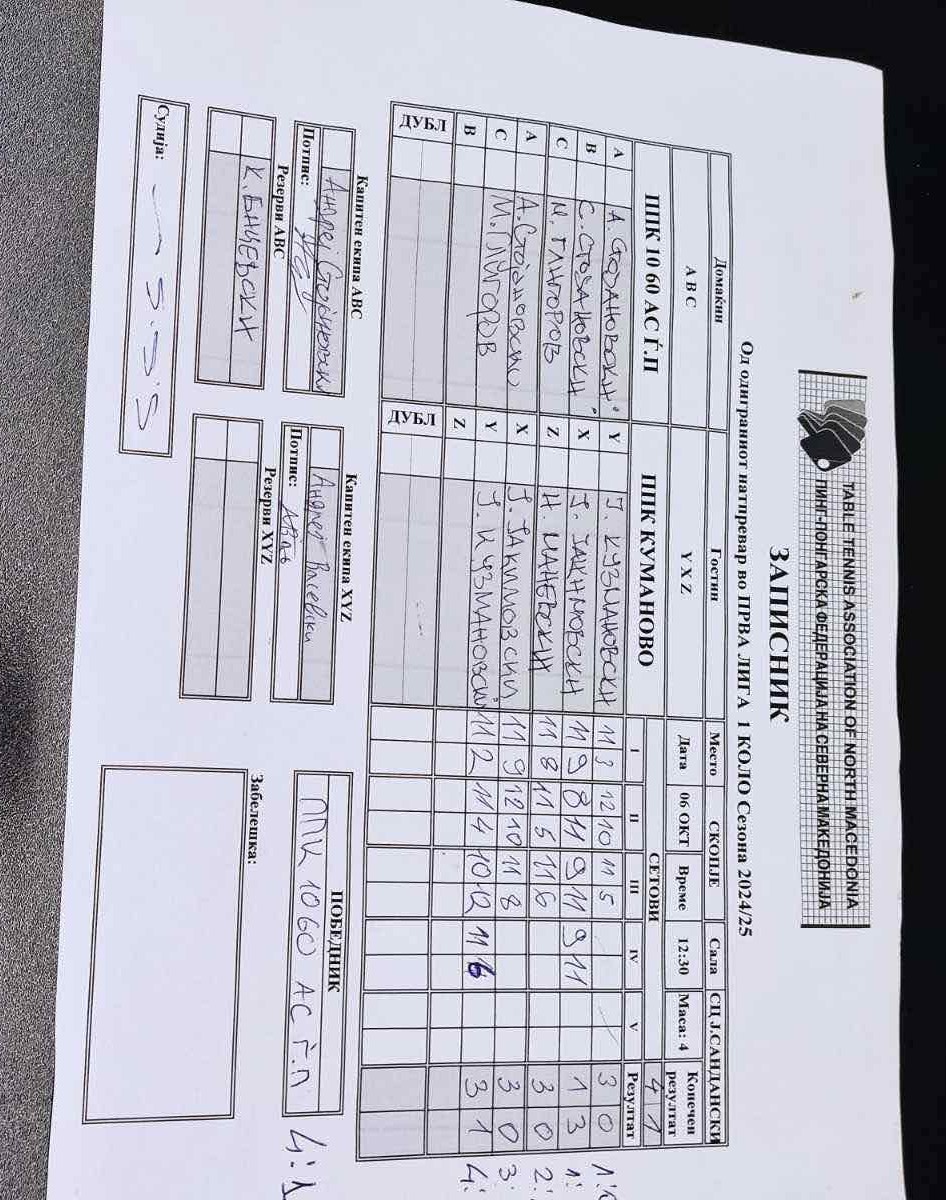 TABLE TENNIS ASSOCIATION OF NORTH MACEDONIA
ПИНГ-ПОНГАРСКА ФЕДЕРАЦИЈА НА СЕВЕРНА МАКЕДОНИЈА
ЗАПИСНИК
Од одиграниот натпревар во ПРВА ЛИГА 1 КОЛО Сезона 2024/25
Домаќин Гостин Место СКОПЈЕ Сала СЦ Ј.САНДАНСКИ
A B C Y X Z Дата 06 ОКТ Време 12:30 Маса: 4 Конечен резултат
4 1
ППК 10 60 АС Ѓ.П ППК КУМАНОВО СЕТОВИ
I II III IV V Резултат
A А. СТОЈАНОВСКИ Y Ј. КУЗМАНОВСКИ 11 3 12 10 11 5 3 0
B С. СТОЈАНОВСКИ X Ј. ЈАКИМОВСКИ 11 9 8 11 9 11 9 11 1 3 1:
C М. ГЛИГОРОВ Z Н. МАНЕВСКИ 11 8 11 5 11 6 3 0 2:
A А. СТОЈАНОВСКИ X Ј. ЈАКИМОВСКИ 11 9 12 10 11 8 3 0 3:
C М. ГЛИГОРОВ Y Ј. КУЗМАНОВСКИ 11 2 11 4 10 12 11 6 3 1 4:
B Z
ДУБЛ ДУБЛ
Капитен екипа ABC Капитен екипа XYZ ПОБЕДНИК
Андреј Стојановски Андреј Василевски ППК 1060 АС Ѓ.П 4:1
Потпис: Потпис:
Резерви ABC Резерви XYZ Забелешка:
К. ЕНЧЕВСКИ
Судија: